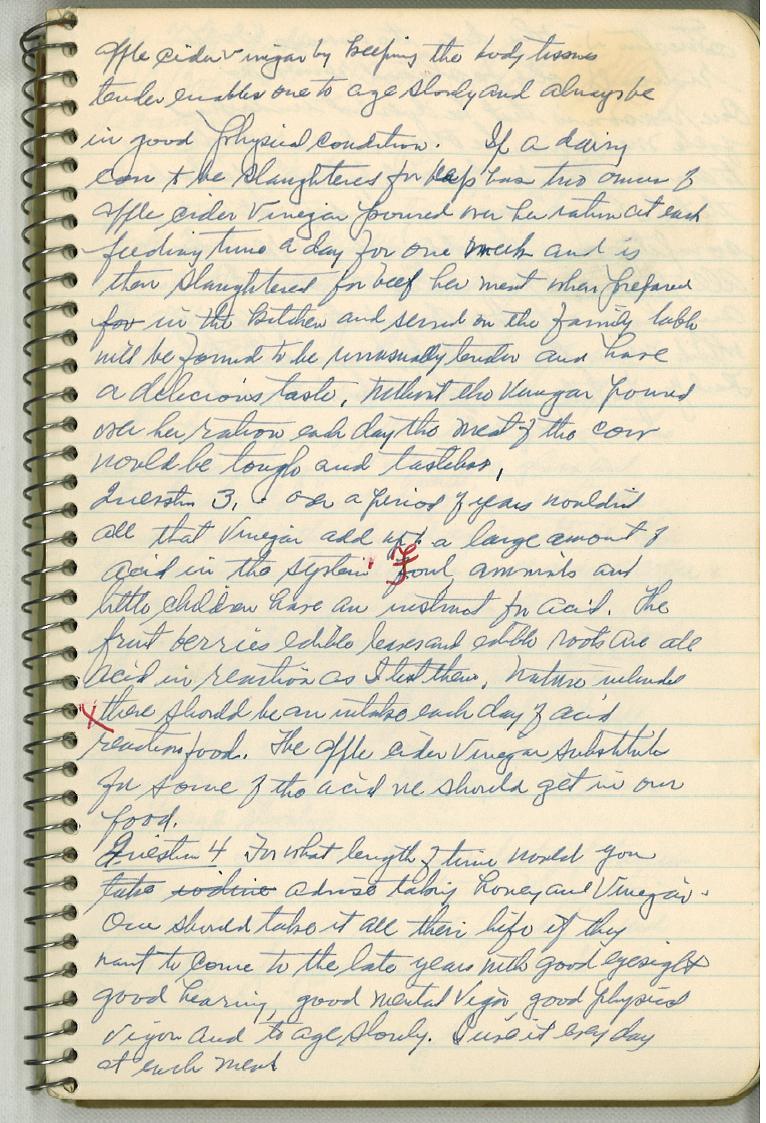 apple cider vinegar by keeping the body tissues
tender enables one to age slowly and always be
in good physical condition. If a dairy
cow to be slaughtered for has two ounces of
apple cider vinegar poured over her ration at each
feeding time a day for one week and is
then slaughtered for beef her meat when prepared
for in the kitchen and served on the family table
will be found to be unusually tender and have
a delicious taste. Without the vinegar poured
over her ration each day the meat of the cow
would be tough and tasteless.
Question 3. over a period of years wouldn't
all that vinegar add up to a large amount of
acid in the system" Fowl animals and
little children have an instinct for acid. The
fruit berries edible leaves and edible roots are all
acid in reaction as I test them. Nature intended
X there should be an intake each day of acid
reaction food. The apple cider vinegar substitute
for some of the acid we should get in our
food.
Question 4 For what length of time would you
take iodine advise taking honey and vinegar.
One should take it all their life if they
want to come to the late years with good eyesight
good hearing, good mental vigor good physical
vigor and to age slowly. I use it every day
at each meal